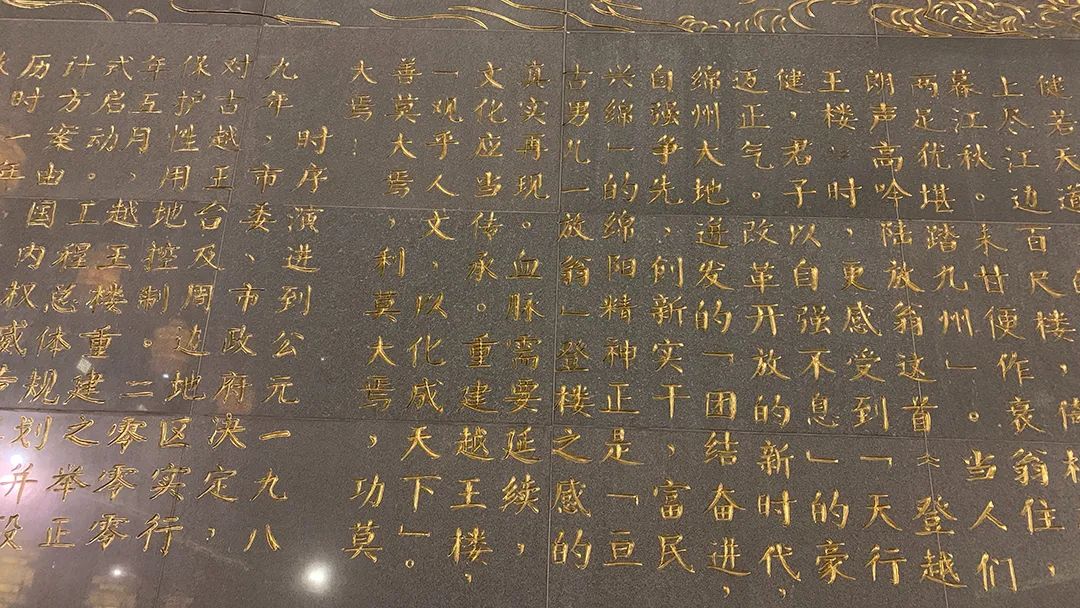 健若天道
上尽江边百尺楼，倚
暮江秋。未甘便作衰翁住，
两足犹堪踏九州」。当人们
朗声高吟陆放翁这首《登越
王楼》时，更感受到「天行
健，君子以自强不息」的豪
迈正气。改革开放的新时代，
绵州大地迸发的「团结奋进，
自强争先，创新实干，富民
兴绵」的绵阳精神正是「亘
古男儿一放翁」登楼之感的
真实再现。血脉需要延续，
文化应当传承。重建越王楼，
一观乎人文，以化成天下」。
善莫大焉，利莫大焉，功莫
大焉！
时序演进到公元一九八
九年，市委、市政府决定，
对古越王台及周边地区实行
保护性用地控制。二零零零
年五月，越王楼重建之举正
式启动。工程总体规划并
计方案由国内权威
历时一年